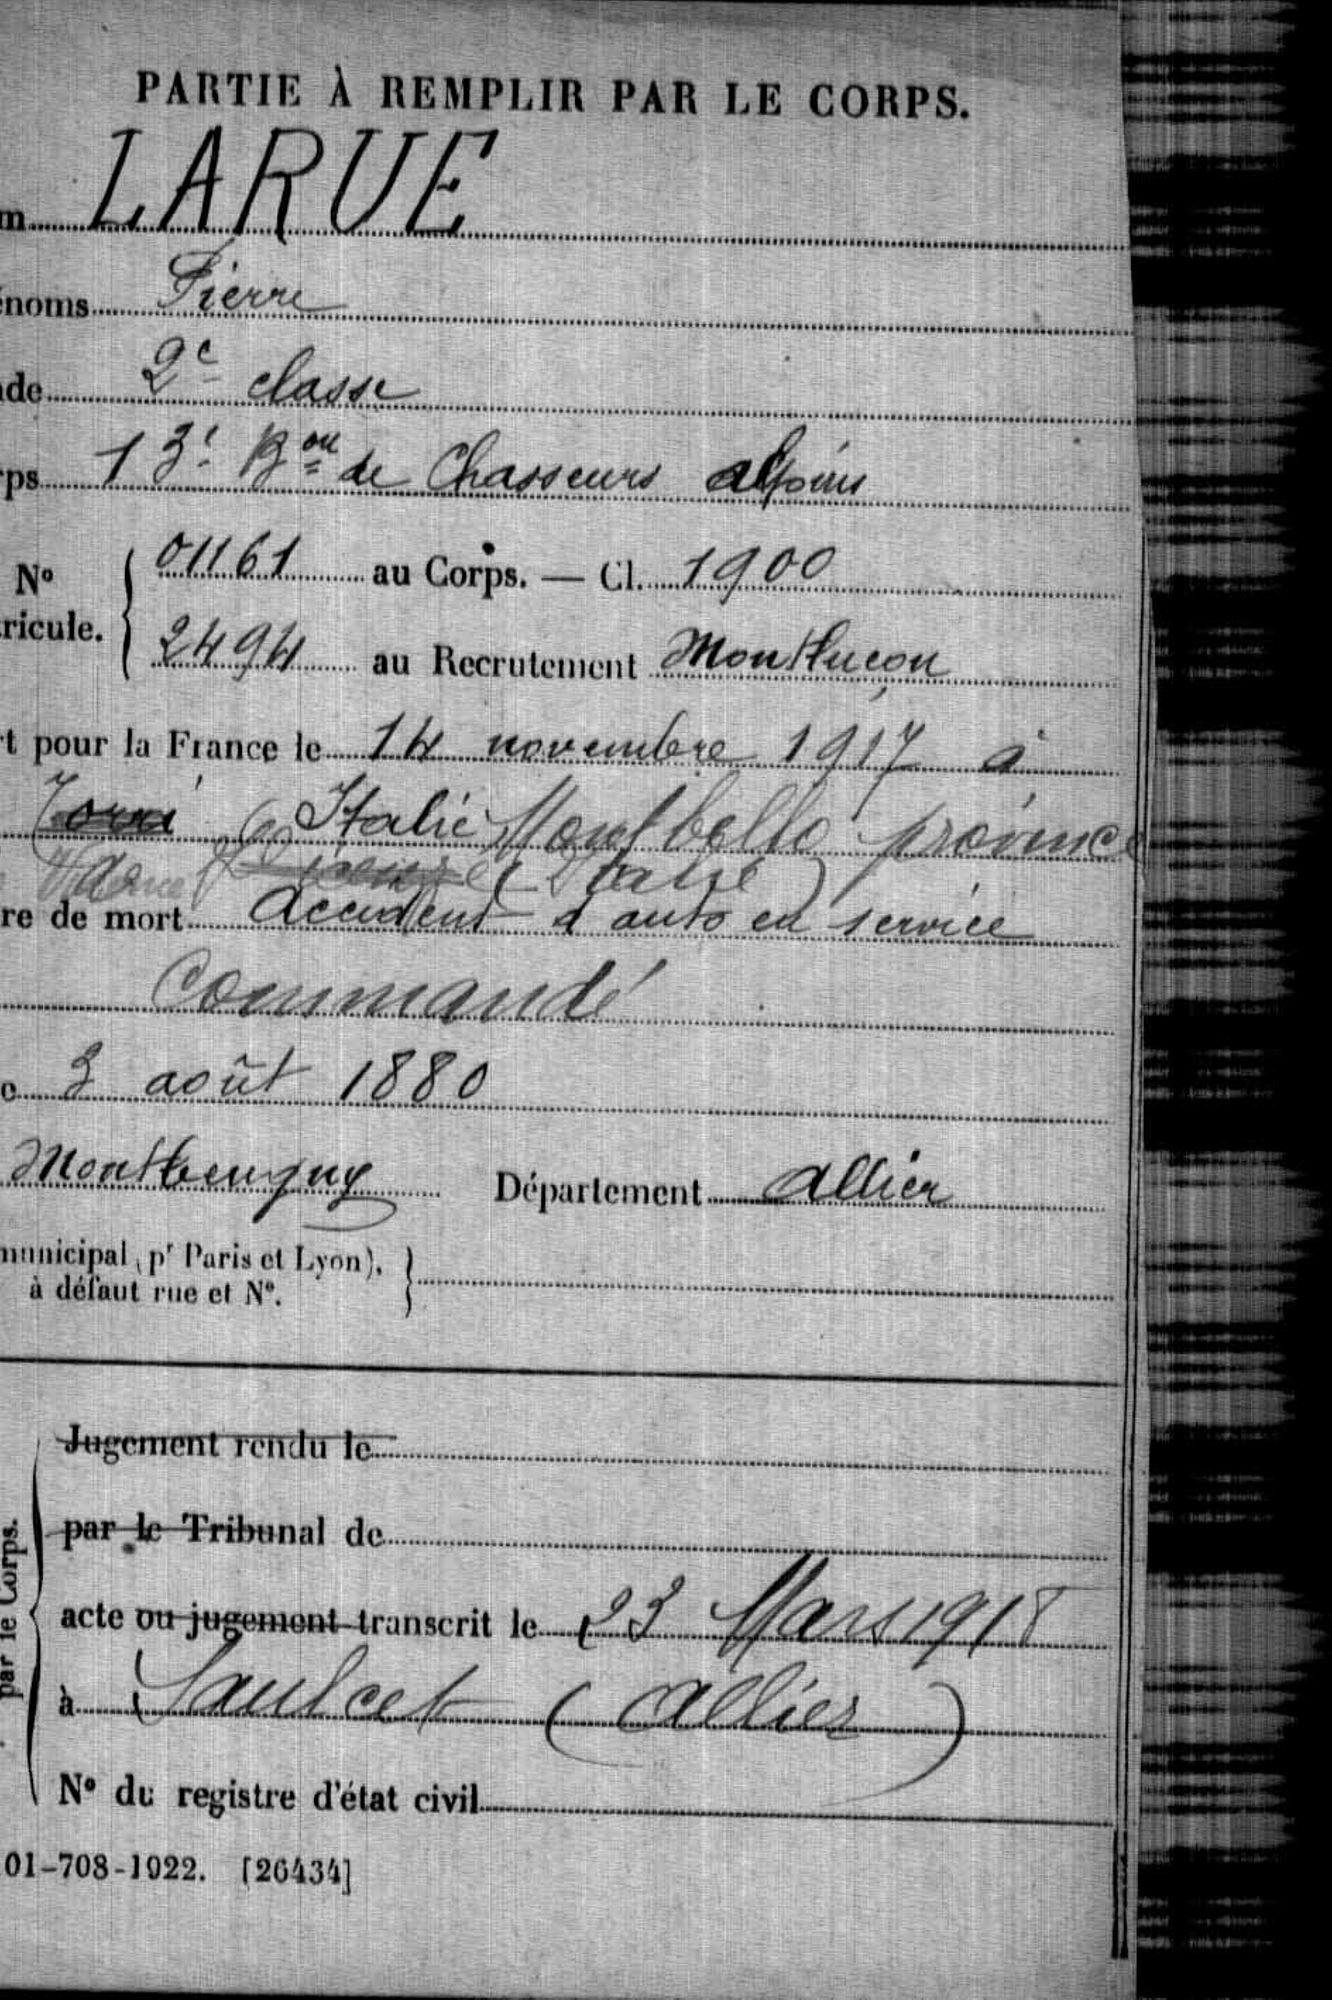 PARTIE À REMPLIR PAR LE CORPS.
m LARUE
énoms Pierre
de 2e classe
rps 13e Bon de Chasseurs alpins
No 01161 au Corps. — Cl. 1900
ricule. 2494 au Recrutement Montluçon
t pour la France le 14 novembre 1917 à
Italie Montbello province
de (Italie)
re de mort Accident d'auto en service
Commandé
3 août 1880
Montbeugny Département Allier
municipal (pr Paris et Lyon),
à défaut rue et No.
Jugement rendu le
par le Tribunal de
par le Corps.
acte ou jugement transcrit le 23 Mars 1918
à Saulcet (Allier)
No du registre d'état civil
01-708-1922. [26434]